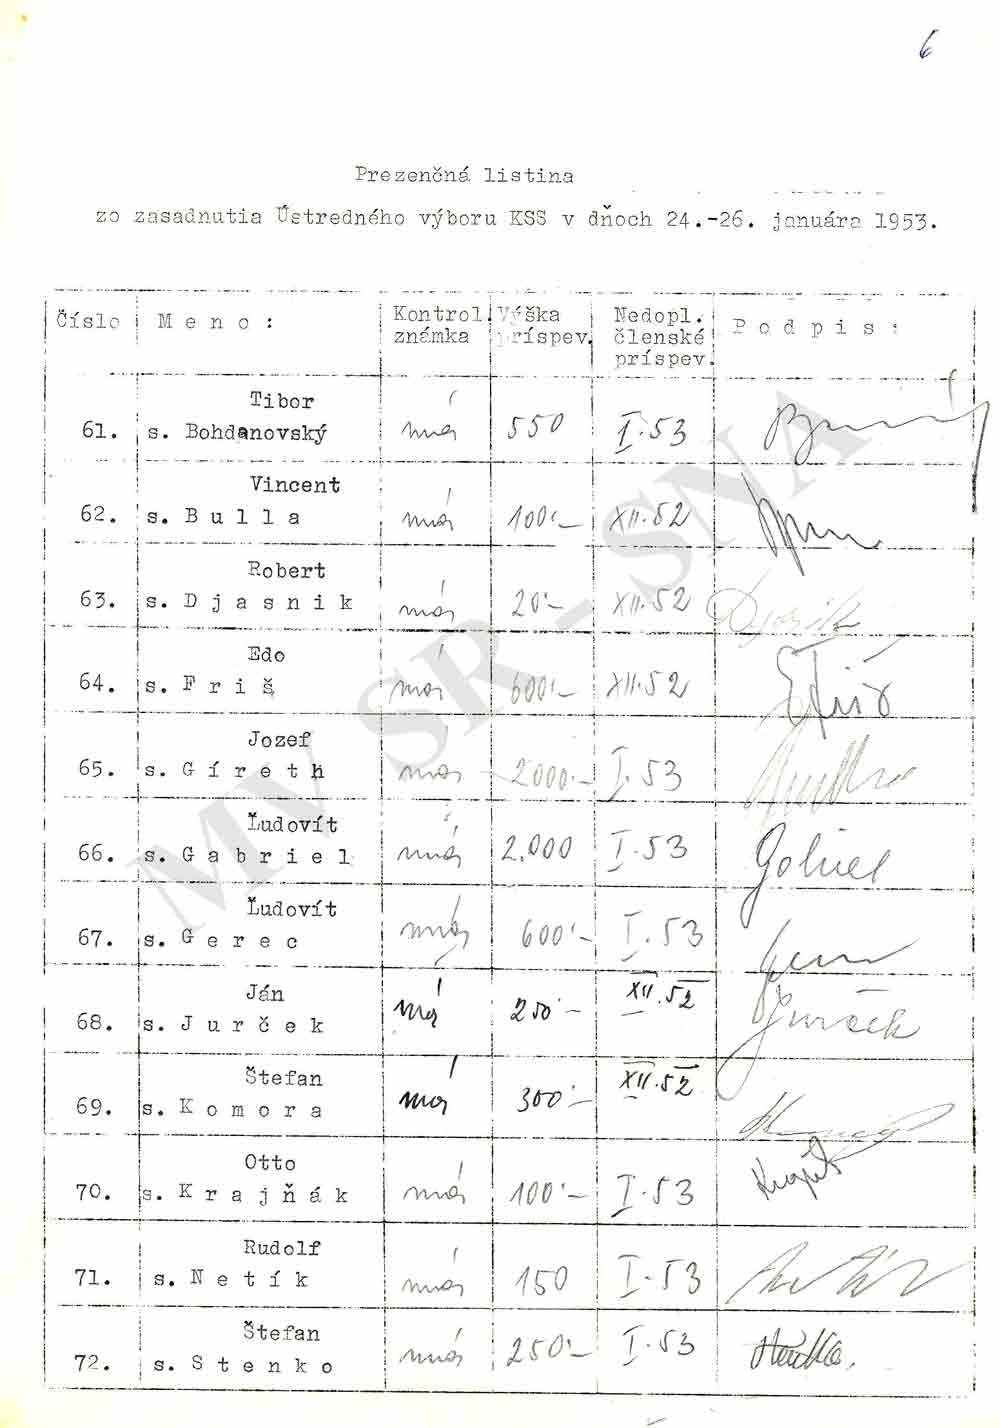 6
Prezenčná listina
zo zasadnutia Ústredného výboru KSS v dňoch 24.-26. januára 1953.
Číslo Meno: Kontrol. známka Výška príspev. Nedopl. členské príspev. Podpis:
Tibor
61. s. Bohdanovský má 550 I.53
Vincent
62. s. Bulla má 100'- XII.52
Robert
63. s. Djasnik má 20'- XII.52
Edo
64. s. Friš má 600'- XII.52 EFriš
Jozef
65. s. Gíreth má 2000'- I.53
Ľudovít
66. s. Gabriel má 2.000 I.53 Gabriel
Ľudovít
67. s. Gerec má 600'- I.53
Ján
68. s. Jurček má 250'- XII.52 Jurček
Štefan
69. s. Komora má 300'- XII.52
Otto
70. s. Krajňák má 100'- I.53
Rudolf
71. s. Netík má 150 I.53
Štefan
72. s. Stenko má 250'- I.53
MV SR - SNA